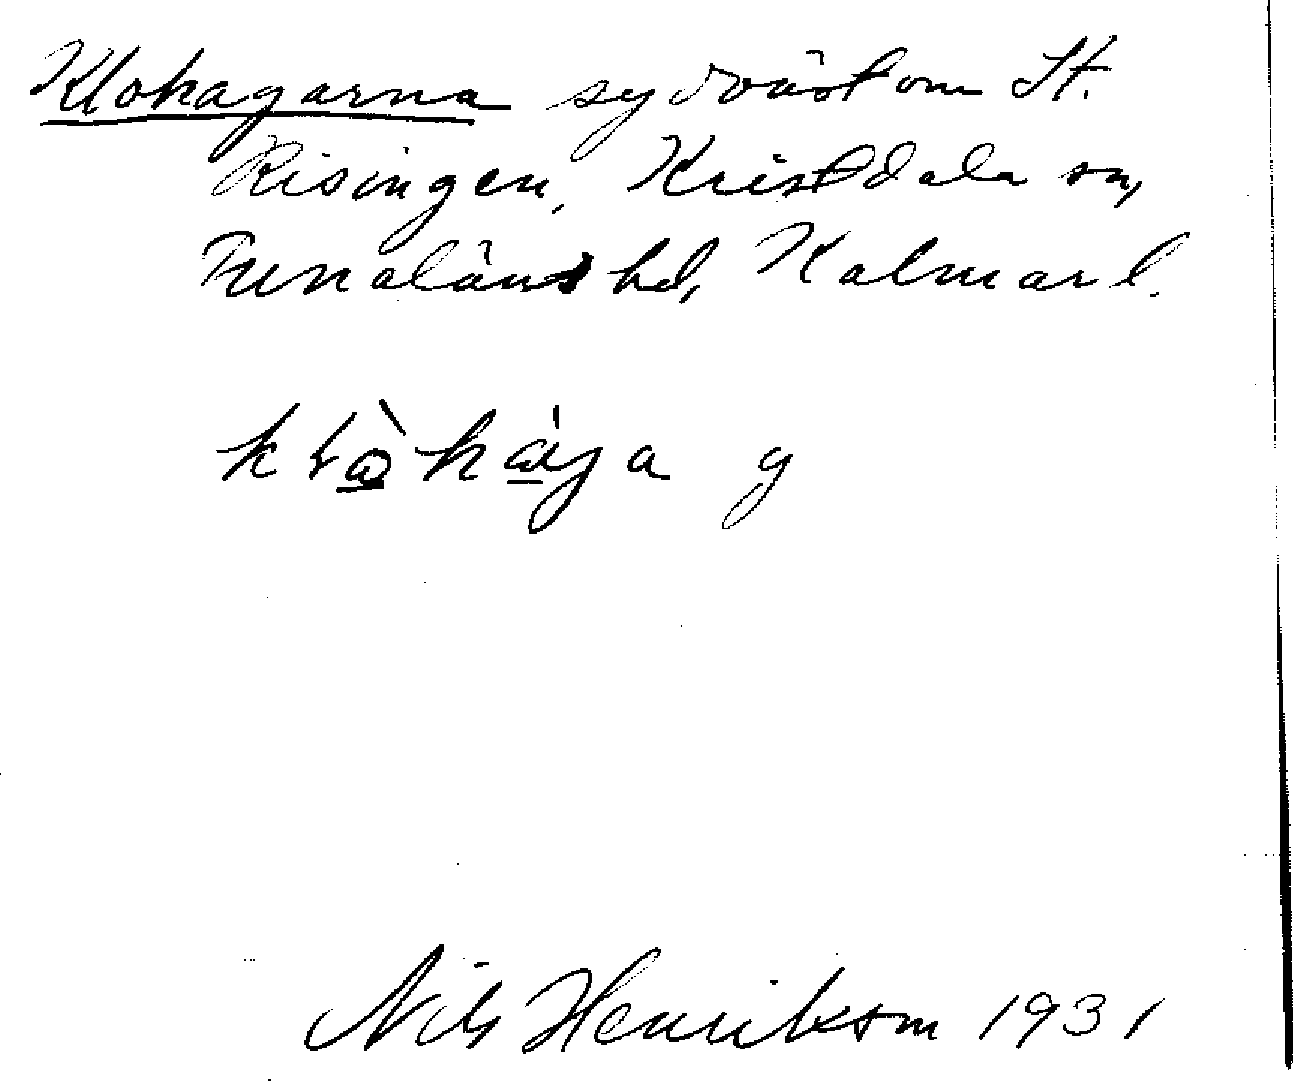 Klohagarna sydväst om St.
Risingen, Kristdala sn,
Tunaläns hd, Kalmar l.
g
Nils Henrikson 1931